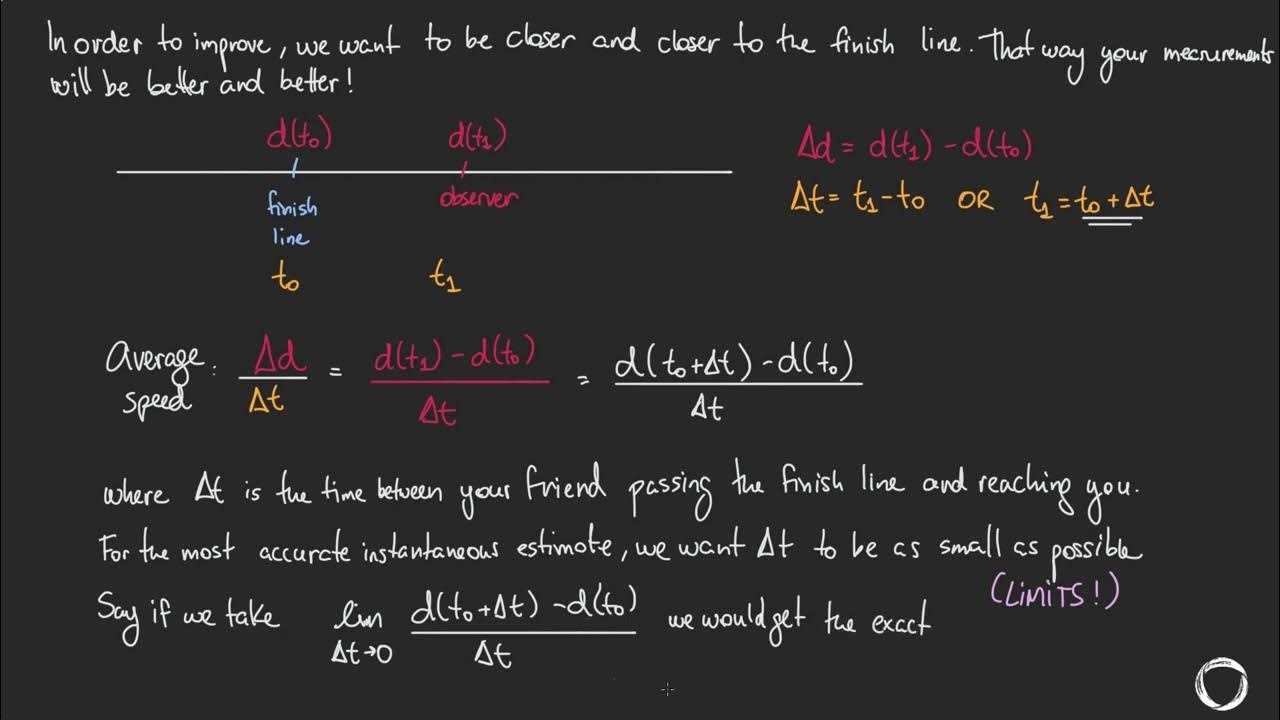 In order to improve, we want to be closer and closer to the finish line. That way your mecrurements
will be better and better!
d(t₀) d(t₁)
finish
line
observer
t₀ t₁
Δd = d(t₁) - d(t₀)
Δt = t₁ - t₀ OR t₁ = t₀ + Δt
Average speed: Δd/Δt = (d(t₁) - d(t₀))/Δt = (d(t₀+Δt) - d(t₀))/Δt
where Δt is the time between your friend passing the finish line and reaching you.
For the most accurate instantaneous estimate, we want Δt to be as small as possible
(LIMITS!)
Say if we take lim Δt→0 (d(t₀+Δt) - d(t₀))/Δt we would get the exact